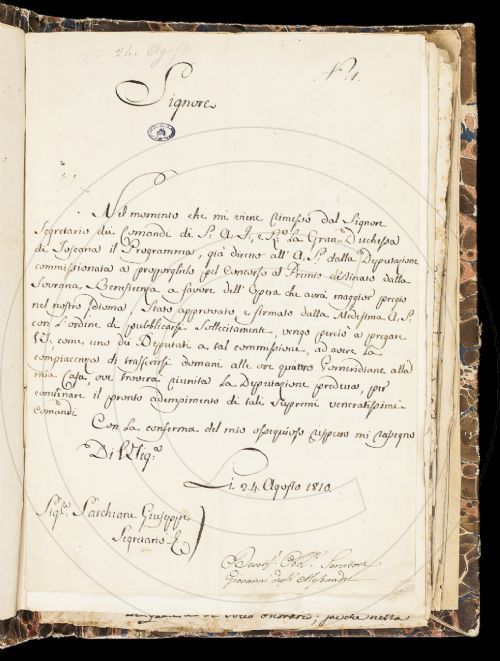 24. Agosto
N. 1.
Signore
Nel momento che mi viene rimesso dal Signore
Segretario dei Comandi di S. A. I., e R. La Gran Duchessa
di Toscana il Programma, già diretto all'A. S. dalla Deputazione
commissionata a proporglielo pel Concorso al Premio destinato dalla
Sovrana Beneficenza a favore dell'Opera che avrà maggior pregio
nel nostro Idioma, Stato approvato e firmato dalla Medesima A. S.
con L'ordine di pubblicarsi Sollecitamente, vengo perciò a pregare
VS. come uno dei Deputati a tal commissione, ad aver La
compiacenza di trasferirsi domani alle ore quattro Pomeridiane alla
mia Casa, ove troverà riunita La Deputazione predetta, per
combinare il pronto adempimento di tali Supremi veneratissimi
Comandi
Con La conferma del mio ossequioso rispetto mi rassegno
Di VS. Ill.
Li. 24. Agosto 1810.
Sig. Sarchiani Giuseppe
Segretario
Devot. Obb. Servitore
Giovanni degli Alessandri